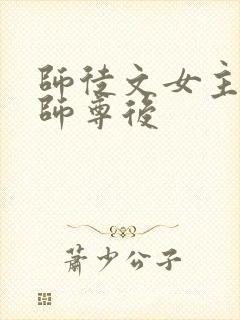 師徒文女主
師尊後
蕭少公子